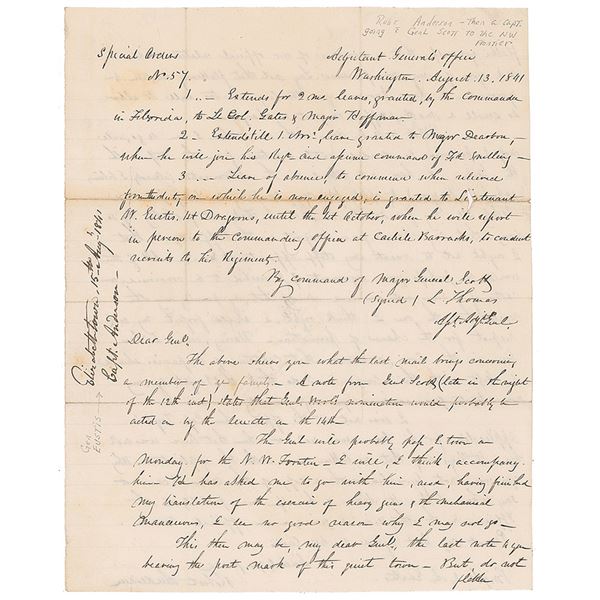 Robt Anderson - then a Capt.
going E Genl Scott to the NW
Frontier
Special Orders
No. 57
Adjutant General's Office
Washington, August 13, 1841
1 .. - Extends for 2 mos. leaves, granted, by the Commander
in Florida, to Lt Col. Gates & Major Hoffman -
2 - Extends till 1. Nov., leave granted to Major Dearborn, -
when he will join his Regt. and assume command of Ft. Snelling -
3 ... - Leave of absence, to commence when relieved
from the duty on which he is now engaged, is granted to Lieutenant
W. Eustis. 1st Dragoons, until the 1st October, when he will report
in person to the Commanding Officer at Carlisle Barracks, to conduct
recruits to his Regiment.
By command of Major General Scott
(Signed) L. Thomas
Asst. Adjt. Genl
Elizabethtown 15th Aug. 1841
Capt. Anderson -
Gen
Eustis →
Dear Genl.
The above shews you what the last mail brings concerning
a member of yr. family. - A note from Genl Scott (late in the night
of the 12th inst) states that Genl. Worth's nomination would probably be
acted on by the Senate on the 14th
The Genl will probably pass E. town on
Monday, for the N. W. Frontier - I will, I think, accompany
him - Had has asked me to go with him, and, having finished
my translation of the exercise of heavy guns & the mechanical
maneuvres, I see no good reason why I may not go -
This then may be, my dear Genl, the last note to you
bearing the post mark of this quiet town - But, do not
flatter